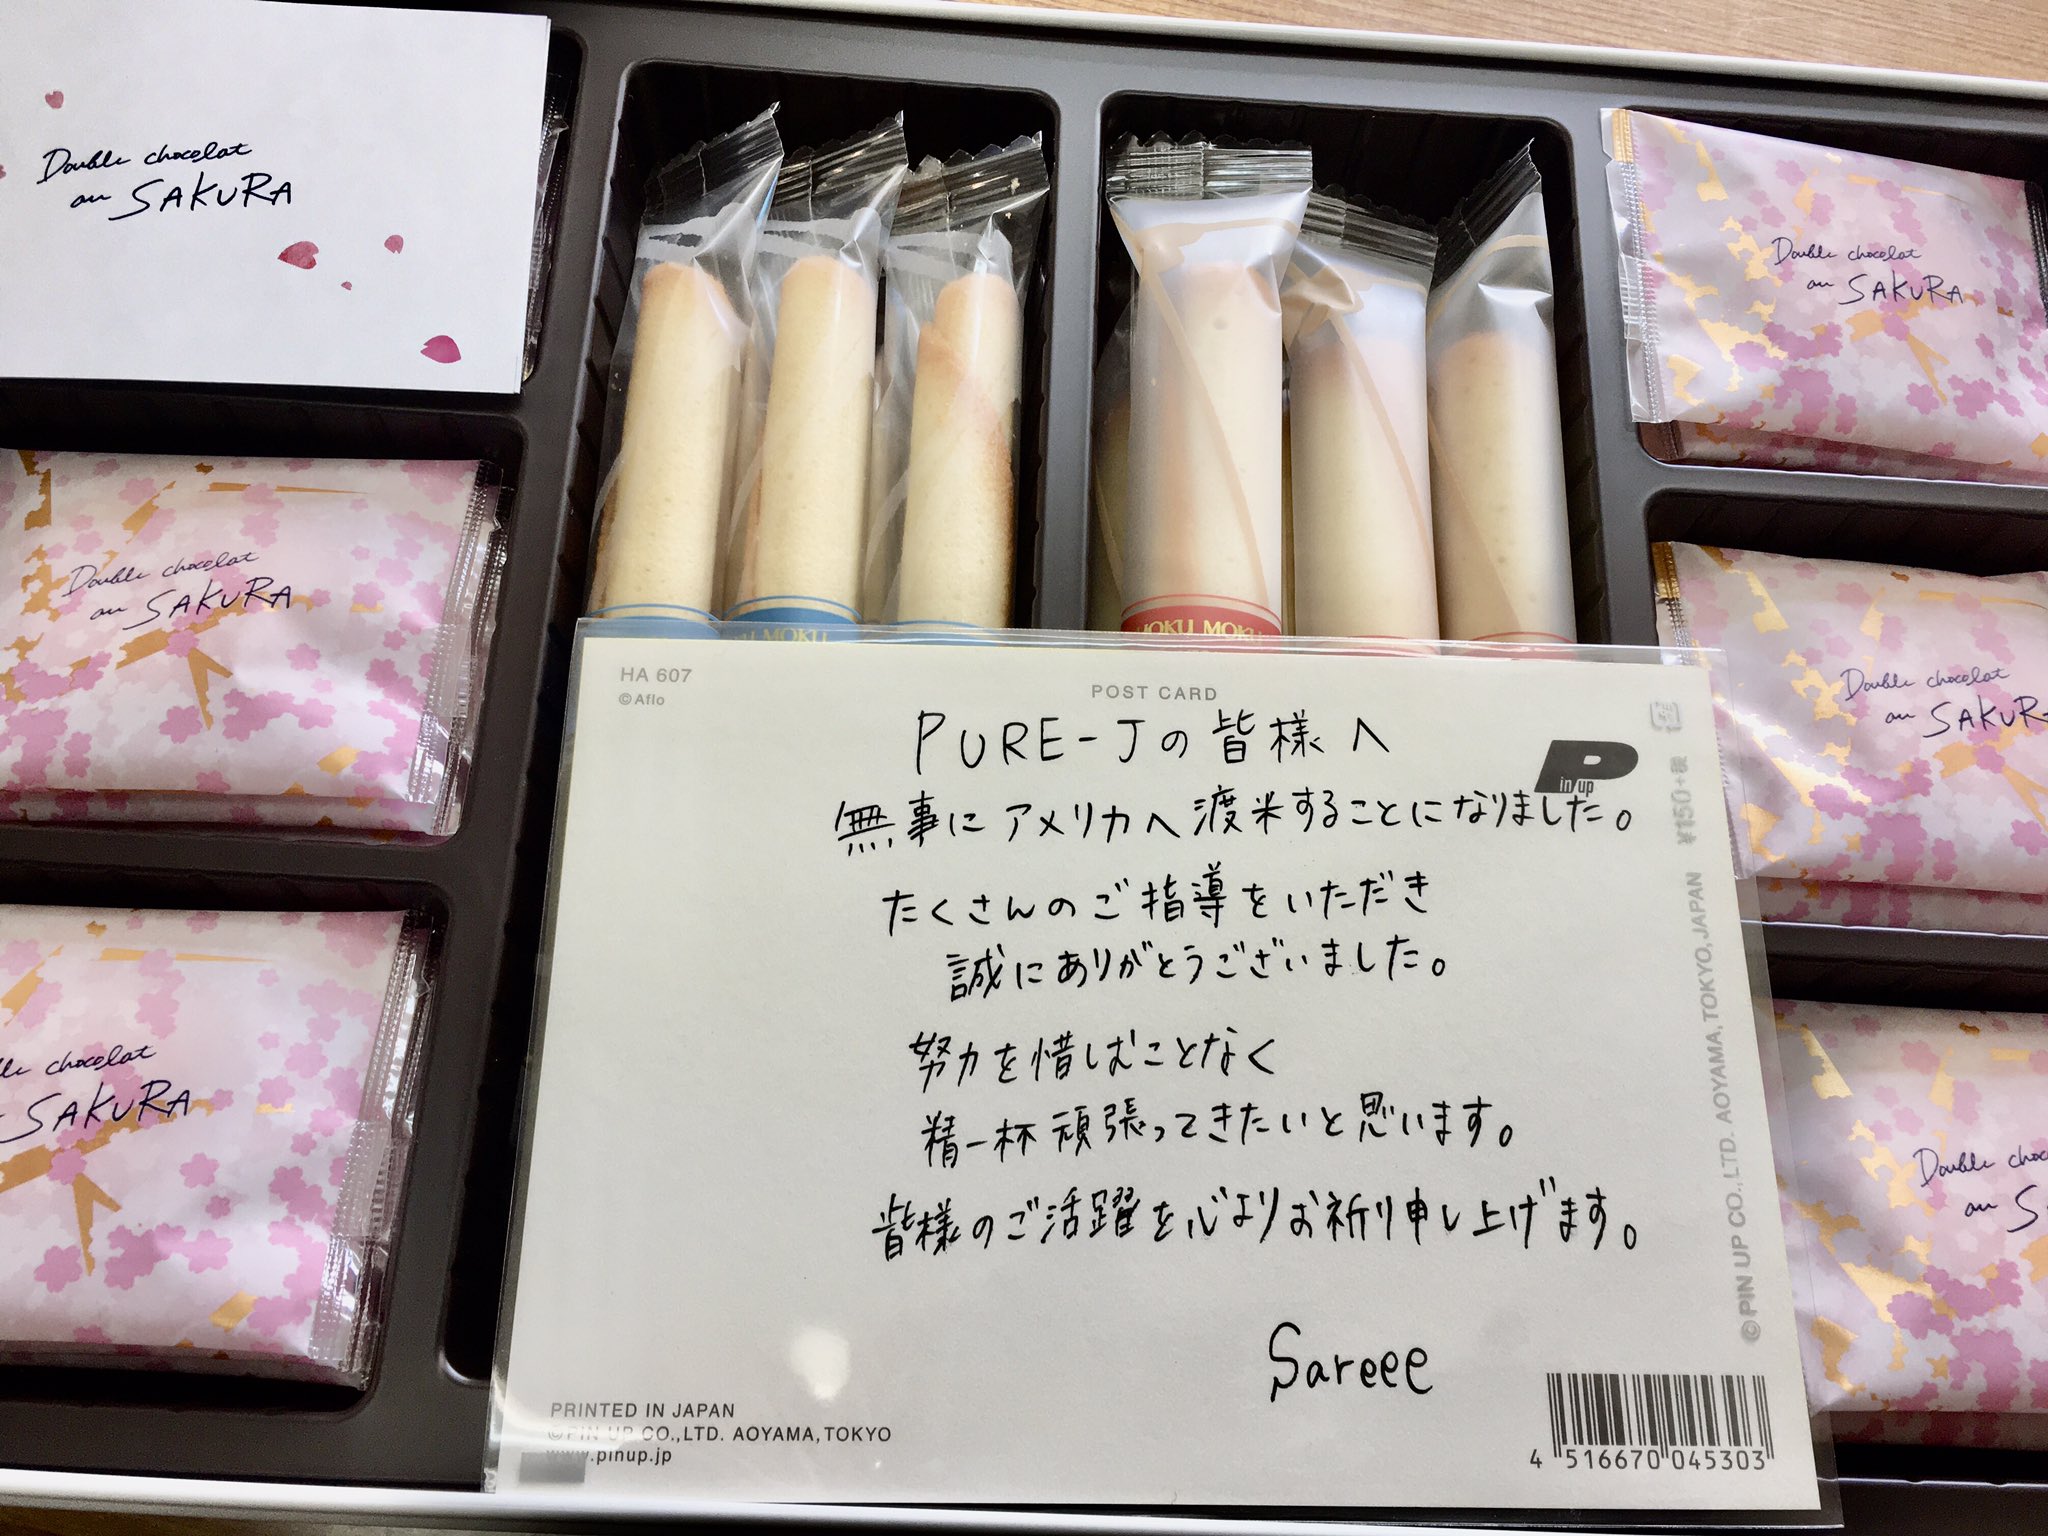 Double chocolat
au SAKURA
Double chocolat
au SAKURA
Double chocolat
au SAKURA
Double chocolat
au SAKURA
chocolat
SAKURA
Double
au
MOKU
MOKU
HA 607
©Aflo
POST CARD
Pin up
PURE-Jの皆様へ
無事にアメリカへ渡米することになりました。
たくさんのご指導をいただき
誠にありがとうございました。
努力を惜しむことなく
精一杯頑張ってきたいと思います。
皆様のご活躍を心よりお祈り申し上げます。
Sareee
¥150+税
©PIN UP CO.,LTD. AOYAMA,TOKYO,JAPAN
PRINTED IN JAPAN
©PIN UP CO.,LTD. AOYAMA,TOKYO
www.pinup.jp
4 516670 045303